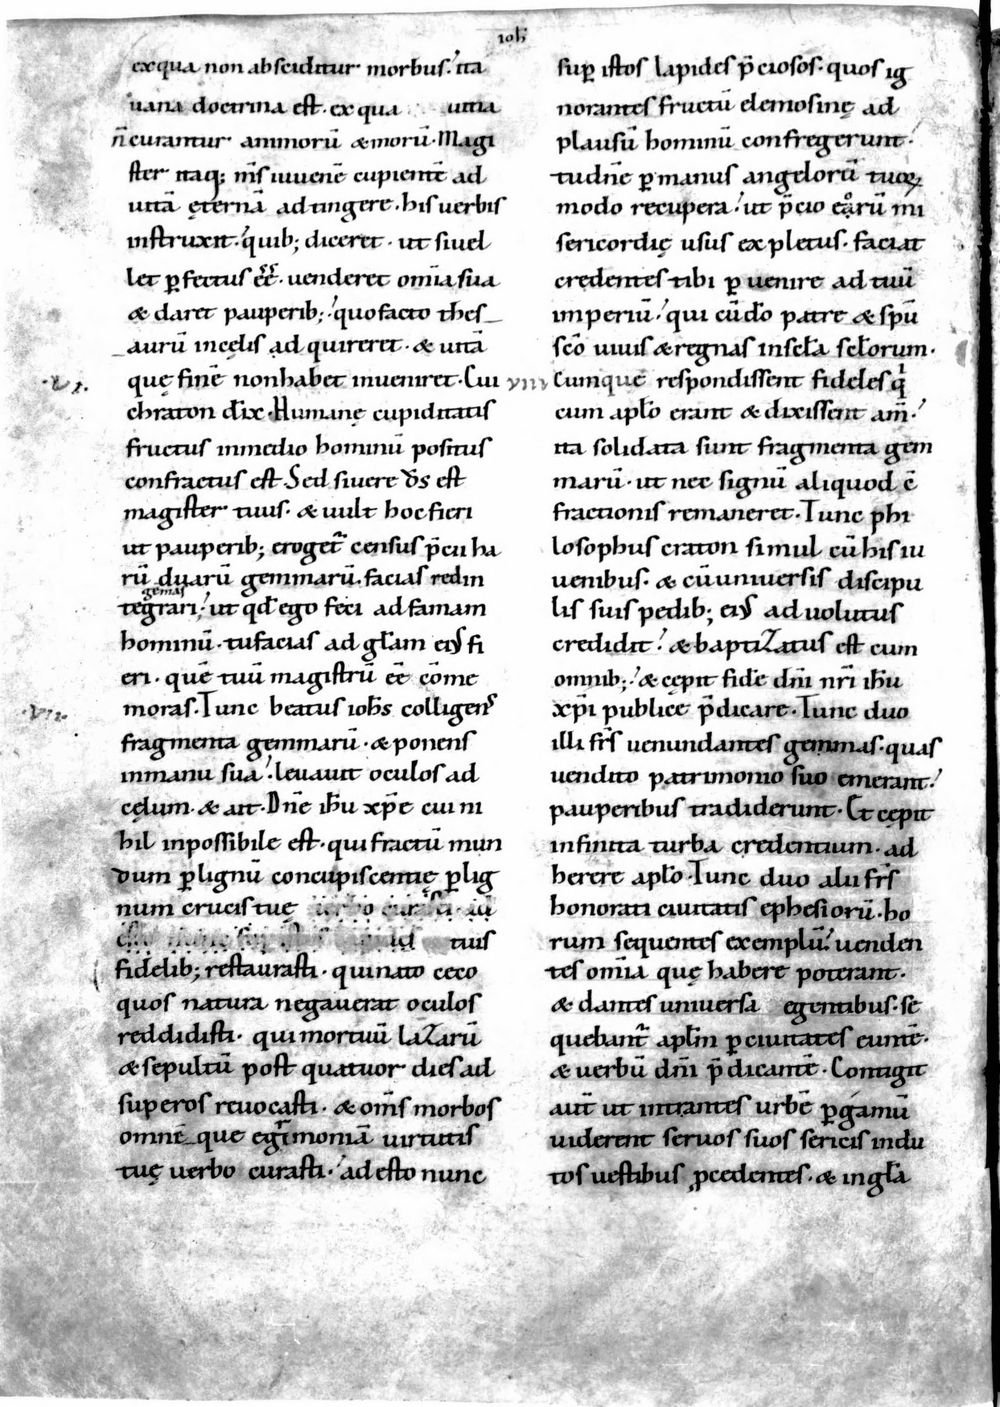 ioħ
ex qua non absciditur morbus. ita
uana doctrina est. ex qua uitia
n̄ curantur animorū & morū. Magi
ster itaq; m̄s iuuenē cupientē ad
uitā ęternā adtingere. his uerbis
instruxit. quib; diceret. ut si uel
let p̱fectus eē̄. uenderet om̄ia sua
& daret pauperib; quo facto thes
aurū in cęlis adquireret. & uitā
quę finē non habet inueniret. Cui
·VI· chraton dix̄. Humanę cupiditatis
fructus in medio hominū positus
confractus est. Sed si uere d̄s est
magister tuus. & uult hoc fieri
ut pauperib; erogetᷣ census p̄cii ha
rū duarū gemmarū. facias redin
gemas
tegrari. ut qđ ego feci ad famam
hominū. tu facias ad glām eiꝰ fi
eri. quē tuū magistrū eē cōme
·VII· moras. Tunc beatus ioħs colligens
fragmenta gemmarū. & ponens
in manu sua. leuauit oculos ad
cęlum. & ait. Dn̄e ih̄u xp̄e cui ni
hil inpossibile est. qui fractū mun
dum p̱ lignū concupiscentię p̱ lig
num crucis tuę
tuis
fidelib; restaurasti. qui nato ceco
quos natura negauerat oculos
reddidisti. qui mortuū lazarū
& sepultū post quatuor dies ad
superos reuocasti. & om̄s morbos
omnē que egritᷣmoniā uirtutis
tuę uerbo curasti. adesto nunc
sup̱ istos lapides p̄ciosos. quos ig
norantes fructū elemosinę ad
plausū hominū confregerunt.
tu dn̄e p̱ manus angelorū tuoꝝ
modo recupera. ut p̄cio earū mi
sericordię usus expletus. faciat
credentes tibi p̱uenire ad tuū
imperiū. qui cū dō patre & spū
scō uiuis & regnas in secła secłorum.
VIII Cumque respondissent fideles q̇
cum apło erant & dixissent am̄.
ita solidata sunt fragmenta gem
marū. ut nec signū aliquod ē
fractionis remaneret. Tunc phi
losophus craton simul cū his iu
uenibus. & cū uniuersis discipu
lis suis pedib; eiꝰ aduolutus
credidit. & baptizatus est cum
omnib; & cępit fidē dn̄i nr̄i ih̄u
xp̄i publice p̄dicare. Tunc duo
illi fr̄s uenundantes gemmas. quas
uendito patrimonio suo emerant.
pauperibus tradiderunt. Et cępit
infinita turba credentium. ad
herere apło. Tunc duo alii fr̄s
honorati ciuitatis ephesiorū. ho
rum sequentes exemplū. uenden
tes om̄ia quę habere poterant.
& dantes uniuersa egentibus. se
quebantᷣ apłm p̱ ciuitates euntē.
& uerbū dn̄i p̄dicantē. Contigit
aut̄ ut intrantes urbē p̱gamū
uiderent seruos suos sericis indu
tos uestibus ꝓcedentes. & in głā